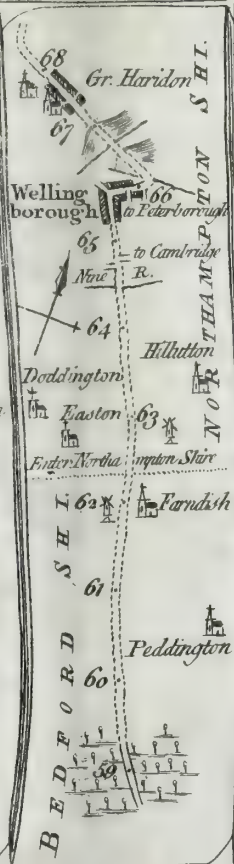 68
Gr. Haridon
67
NORTHAMPTON SHI.
Welling
borough
66
to Peterborough
65
to Cambridge
Nine R.
64
Hillutton
Doddington
Easton
63
Enter Northa mpton Shire
62
Farndish
BEDFORD SHI.
61
Peddington
60
59